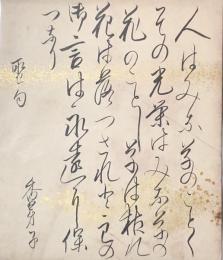 人はみな草のことく
その光栄はみな草の
花のことし草は枯れ
花は落つされと主の
御言は永遠に保
つなり
聖句